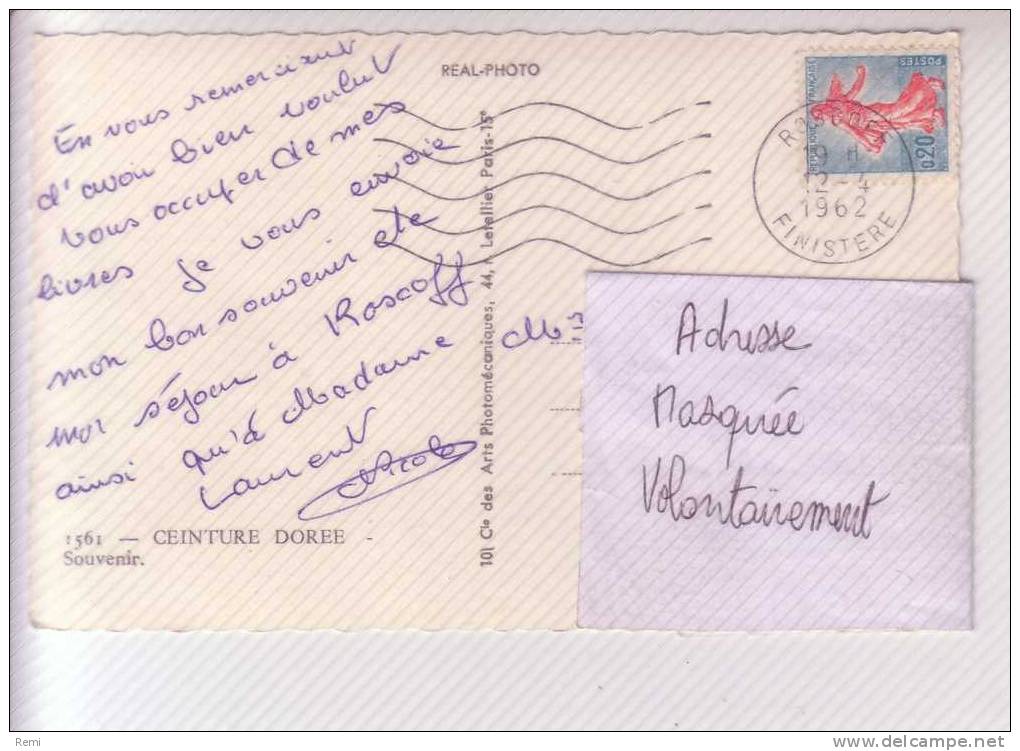 En vous remerciant
d'avoir bien voulut
vous occuper de mes
livres je vous envoie
mon bon souvenir de
mon séjour à Roscoff
ainsi qu'à Madame
Laurent
Nicole
1561 — CEINTURE DOREE -
Souvenir.
REAL-PHOTO
Cie des Arts Photomécaniques, 44, r. Letellier Paris-15e
REPUBLIQUE FRANÇAISE
POSTES
0,20
12-4
1962
FINISTERE
M
Adresse
Masquée
Volontairement
Remi
http://www.delcampe.net